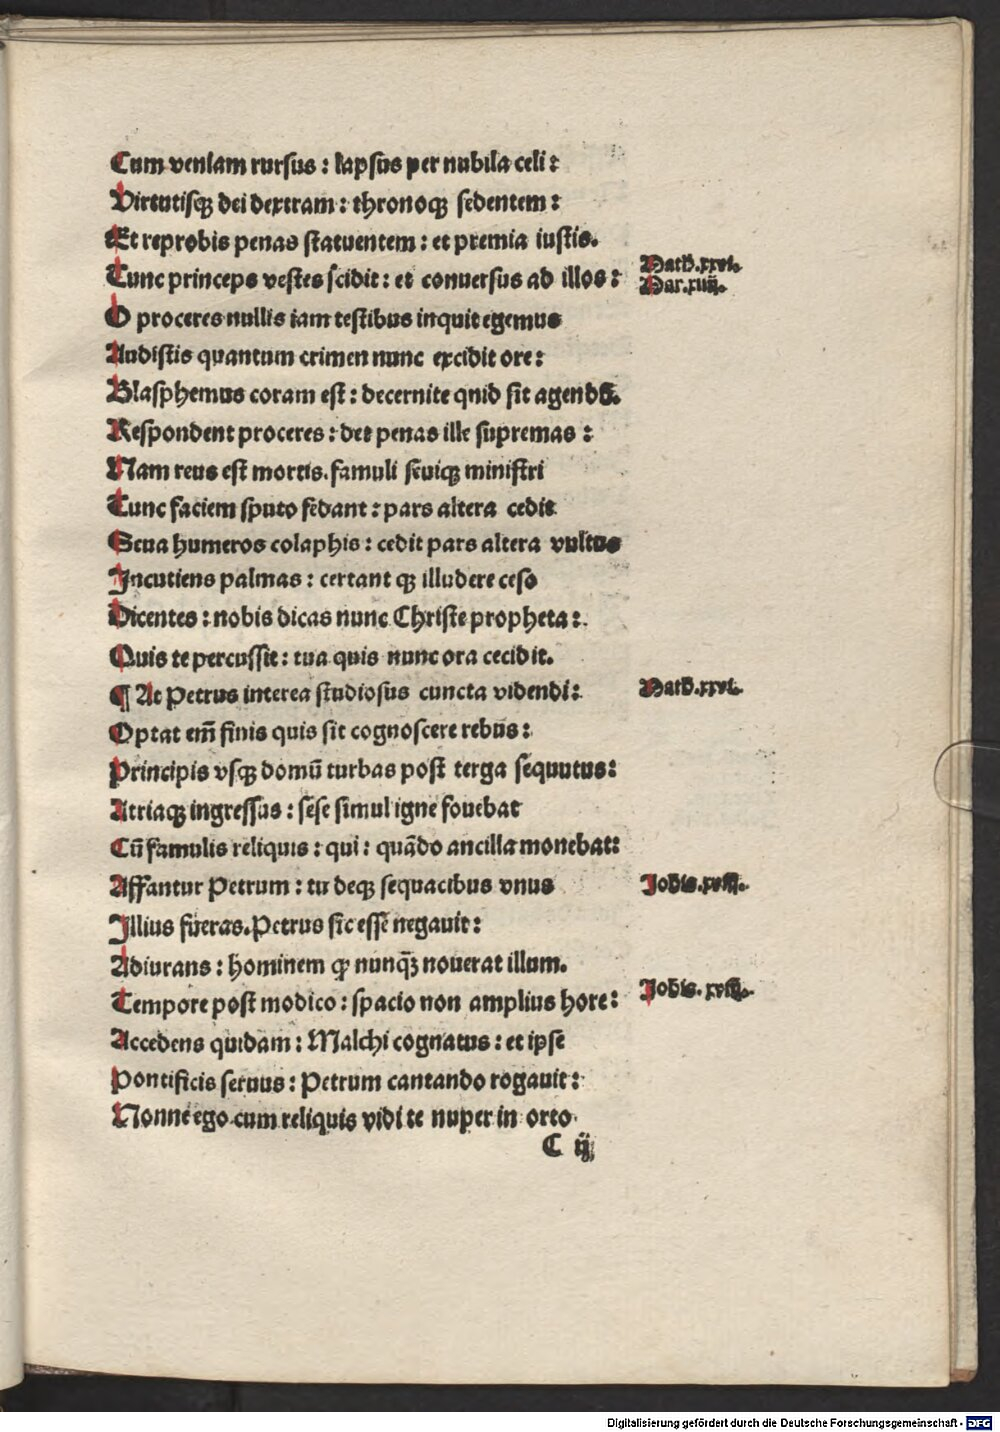 Cum veniam rursus : lapsus per nubila celi :
Virtutisqꝫ dei dextram : thronoqꝫ sedentem :
Et reprobis penas statuentem : et premia iustis.
Math̄.xxvi.
Tunc princeps vestes scidit : et conuersus ad illos :
Mar.xiiij.
O proceres nullis iam testibus inquit egemus
Audistis quantum crimen nunc excidit ore :
Blasphemus coram est : decernite qnid sit agendū.
Respondent proceres : det penas ille supremas :
Nam reus est mortis. famuli seuiqꝫ ministri
Tunc faciem sputo fedant : pars altera cedit
Seua humeros colaphis : cedit pars altera vultus
Incutiens palmas : certant qꝫ illudere ceso
Dicentes : nobis dicas nunc Christe propheta :
Quis te percussit : tua quis nunc ora cecidit.
¶ At Petrus interea studiosus cuncta videndi :
Math̄.xxvi.
Optat em̄ finis quis sit cognoscere rebus :
Principis vsqꝫ domū turbas post terga sequutus :
Atriaqꝫ ingressus : sese simul igne fouebat
Cū famulis reliquis : qui : quādo ancilla monebat :
Affantur Petrum : tu deqꝫ sequacibus vnus
Johis.xviij.
Illius fueras. Petrus sic esse negauit :
Adiurans : hominem ꝙ nunqꝫ̄ nouerat illum.
Tempore post modico : spacio non amplius hore :
Johis. xviij.
Accedens quidam : Malchi cognatus : et ipse
Pontificis seruus : Petrum cantando rogauit :
Nonne ego cum reliquis vidi te nuper in orto
C ij
Digitalisierung gefördert durch die Deutsche Forschungsgemeinschaft - DFG